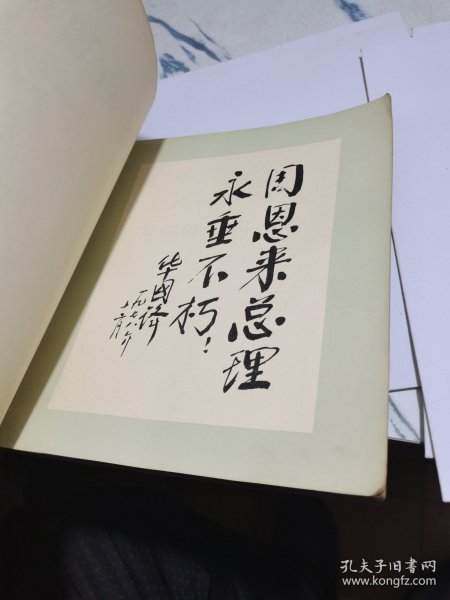 周恩来总理
永垂不朽！
华国锋
一九七八年
十一月
孔夫子旧书网
www.kongfz.com